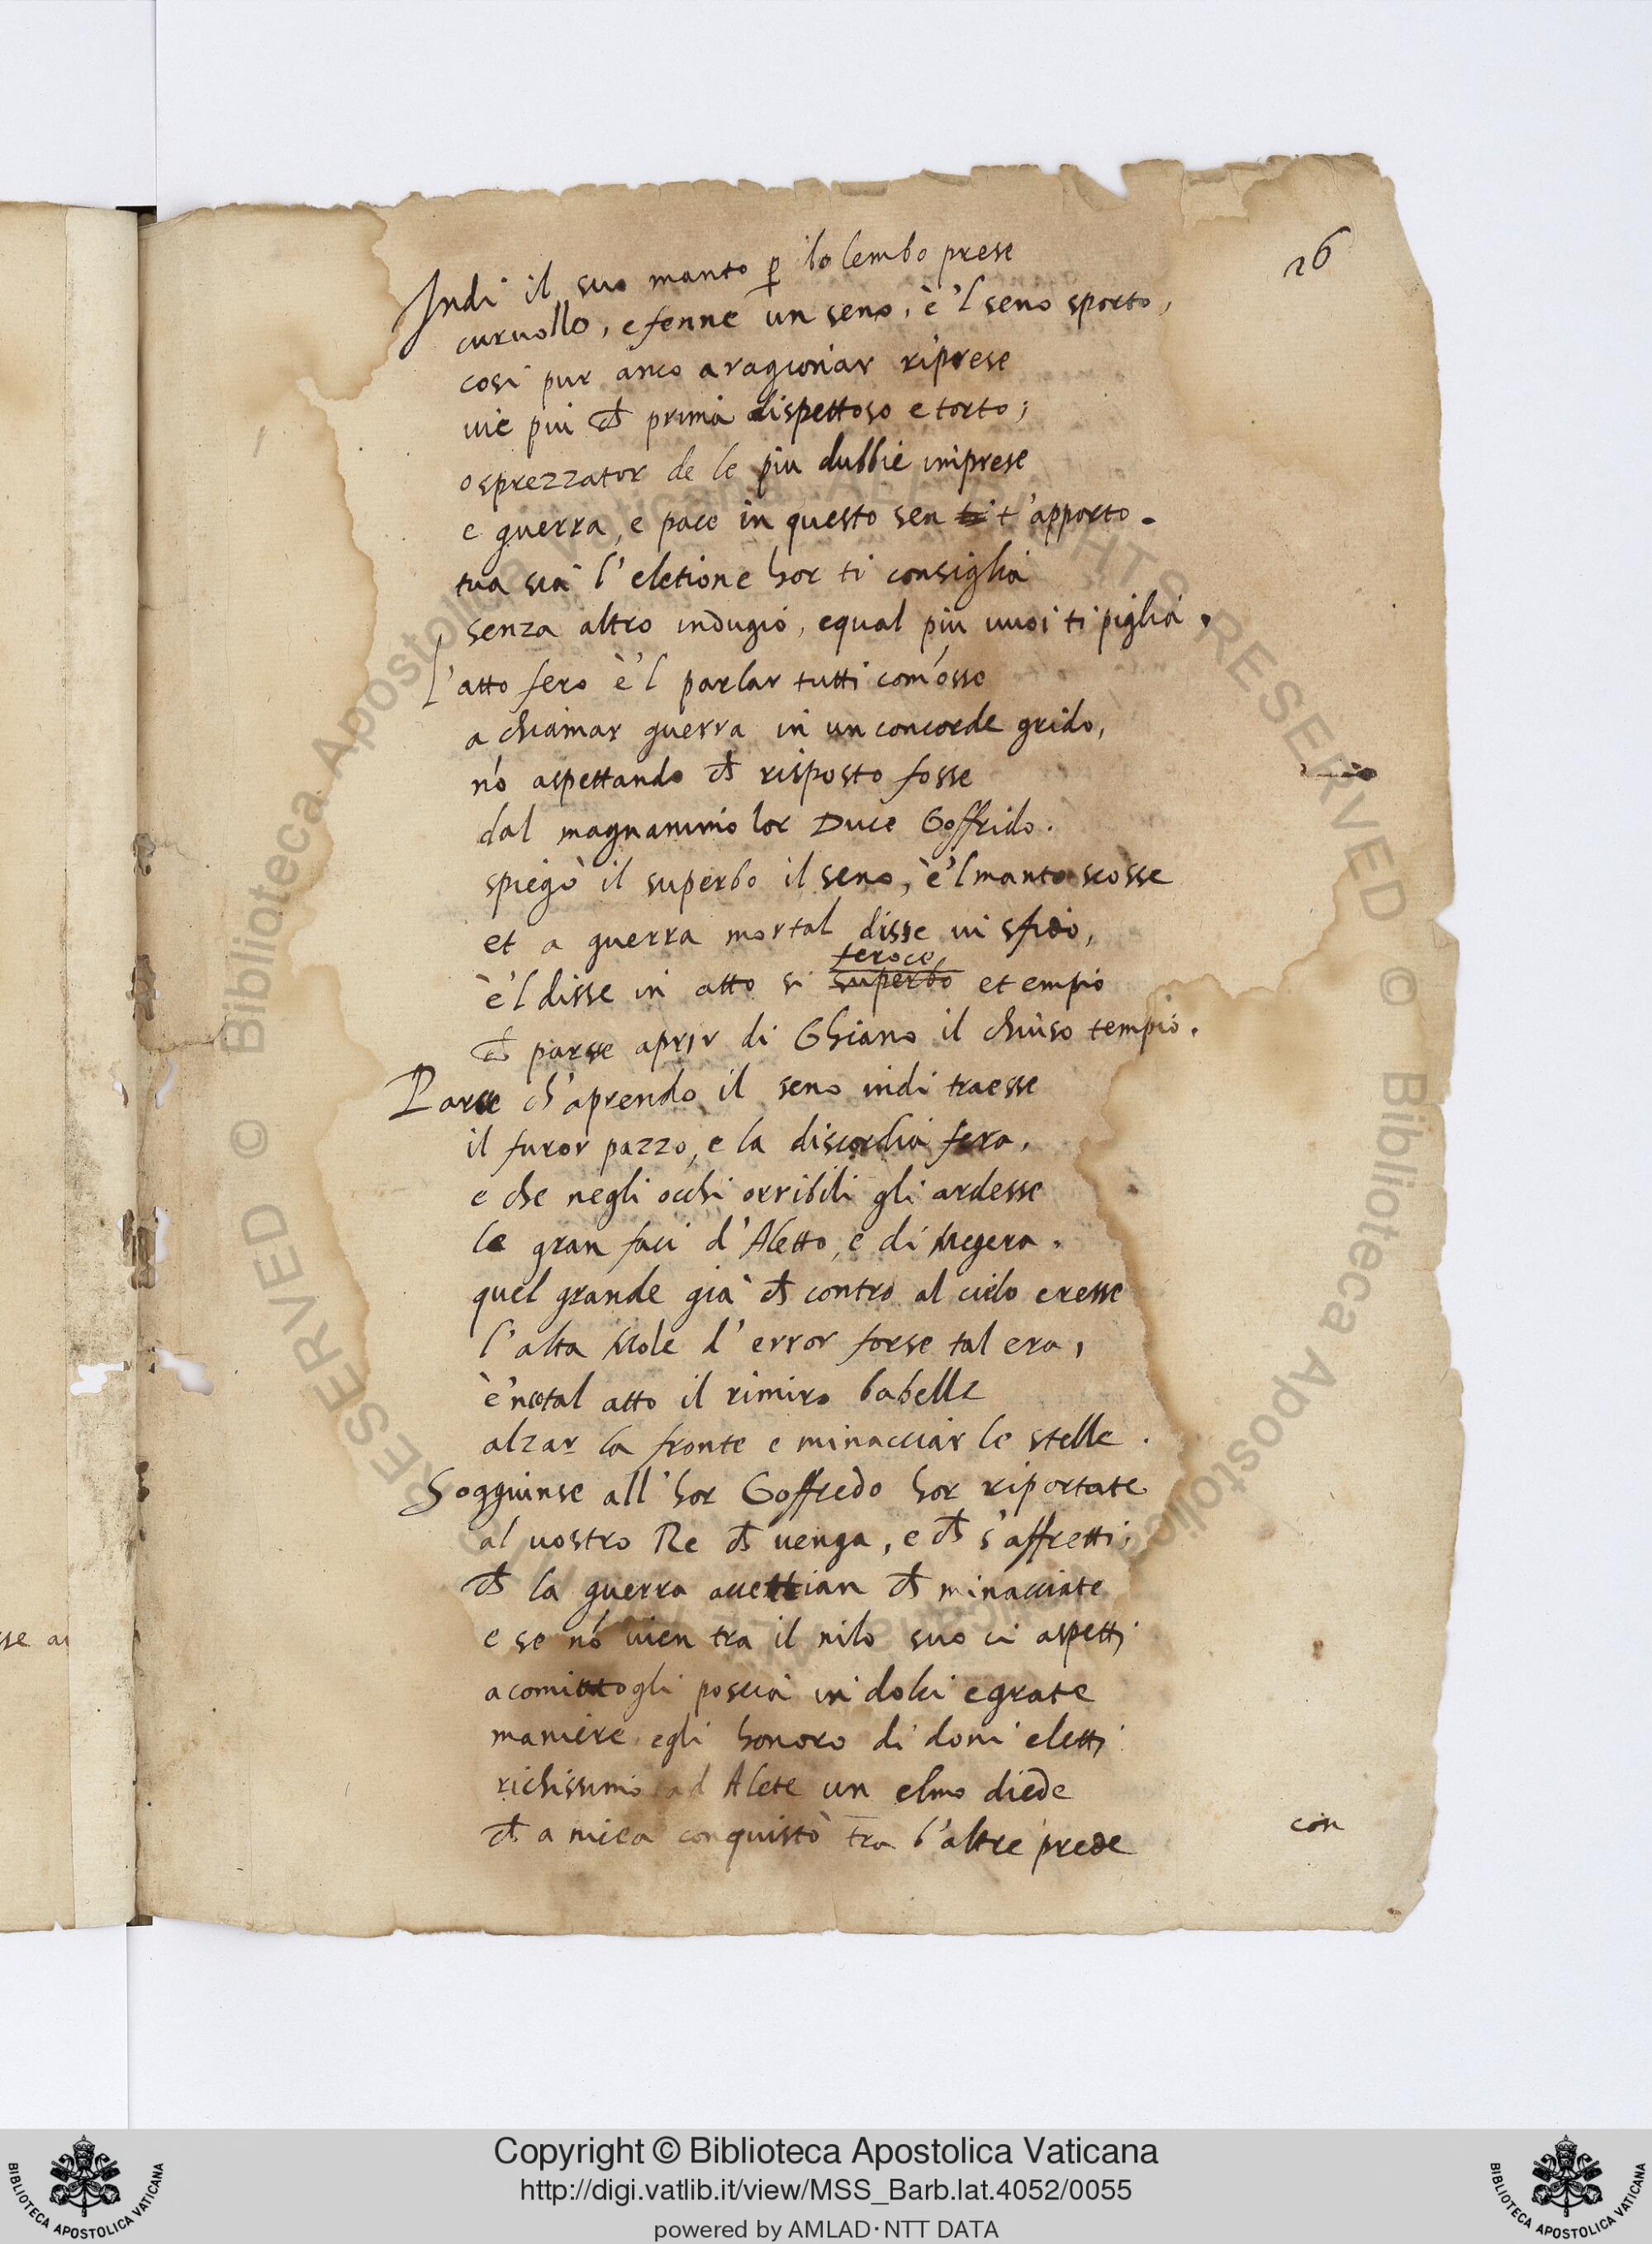 26
Indi il suo manto ꝑ lo lembo prese
curuollo, e fenne un seno, è'l seno sporto,
cosi pur anco a ragionar riprese
uie piu ch̄ prima dispettoso e torto;
o sprezzator de le piu dubbie imprese
e guerra, e pace in questo sen ti t'apporto.
tua sia l'eletione hor ti consiglia
senza altro indugio, e qual piu uuoi ti piglia.
L'atto fero è'l parlar tutti com'osse
a chiamar guerra in un concorde grido,
nó aspettando ch̄ risposto fosse
dal magnanimo lor Duce Goffrido.
spiegò il superbo il seno, è'l manto scosse
et a guerra mortal disse ui sfido,
feroce
è'l disse in atto si superbo et empio
ch̄ parse aprir di Ghiano il chiuso tempio.
Parse ch'aprendo il seno indi traesse
il furor pazzo, e la discordia fera,
e che negli occhi orribili gli ardesse
le gran faci d'Aletto, e di Megera.
quel grande già ch̄ contro al cielo eresse
l'alta Mole d'error forse tal era,
è'n cotal atto il rimiro babelle
alzar la fronte e minacciar le stelle.
Soggiunse all'hor Goffredo hor riportate
al uostro Re ch̄ uenga, e ch̄ s'affretti,
ch̄ la guerra accettian ch̄ minacciate
e se nó uien tra il nilo suo ci aspetti
acomiatogli poscia in dolci e grate
maniere, egli honoro di doni eletti
richissimo ad Alete un elmo diede
ch̄ a nicea conquistò tra l'altre prede
con
sse
Copyright © Biblioteca Apostolica Vaticana
http://digi.vatlib.it/view/MSS_Barb.lat.4052/0055
powered by AMLAD·NTT DATA
BIBLIOTECA APOSTOLICA VATICANA
BIBLIOTECA APOSTOLICA VATICANA